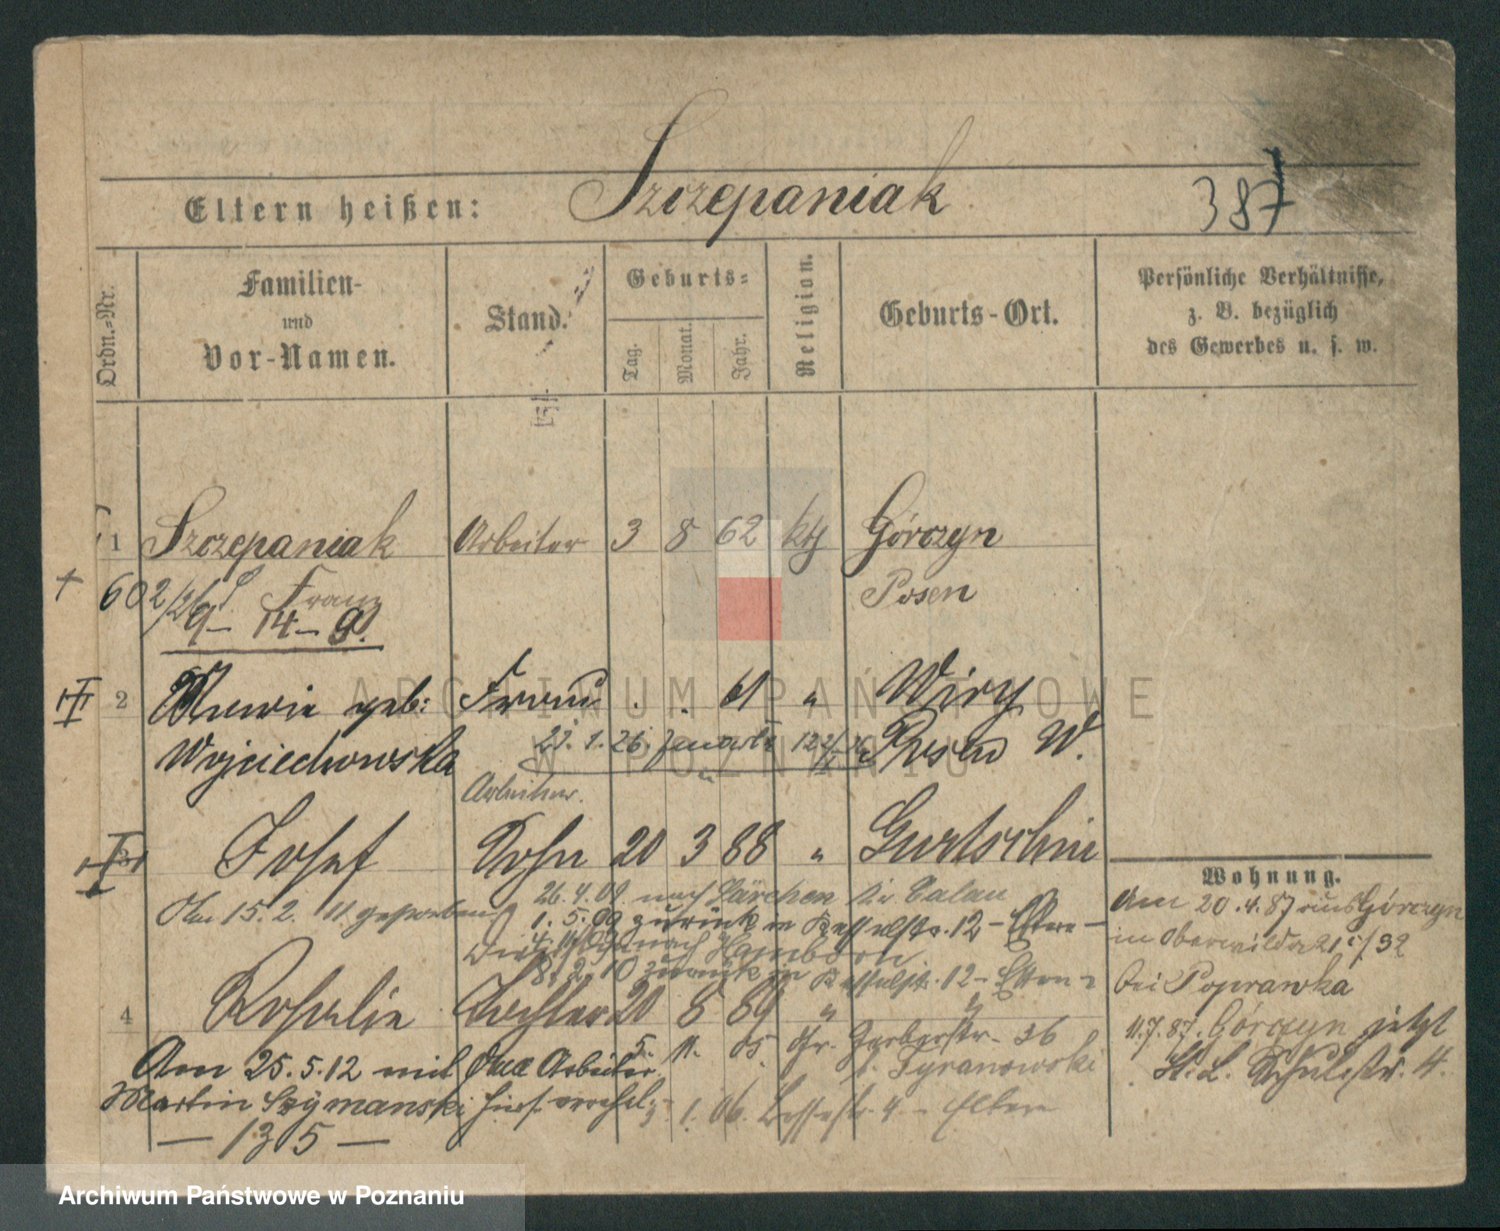 Szczepaniak
Eltern heißen:
387
Ordn.-Nr.
Familien-
und
Vor-Namen.
Stand.
Geburts-
Tag.
Monat.
Jahr.
Religion.
Geburts-Ort.
Persönliche Verhältnisse,
z. B. bezüglich
des Gewerbes u. s. w.
1 Szczepaniak Arbeiter 3 8 62 kth Górczyn
602 Franz Posen
9 – 14 – 9.
2 Marie geb: Frau . . 61 " Wiry
Wojciechowska Posen W.
Arbeiter.
3 Josef Sohn 20 3 88 " Gurtschin
26.4.09. nach Särchen Kr. Calau
Am 15.2.11 gestorben
1.5.09 zurück in Kesselstr. 12 – Eltern –
nach Hamborn
8.2.10 zurück in Kesselstr. 12 – Eltern
4 Rosalie Tochter 20 8 89 " "
5. 11. 05. Gr. Gerberstr. 36
Am 25.5.12 mit dem Arbeiter
Martin Szymanski hier verehel.
1. 06. 4 – Eltern
— 135 —
Wohnung.
Am 20.4.87 aus Górczyn
in Oberwilda 21/32
bei Poprawka
11.7.87. Górczyn jetzt
St. L. Schulstr. 4.
ARCHIWUM PAŃSTWOWE
W POZNANIU
Archiwum Państwowe w Poznaniu